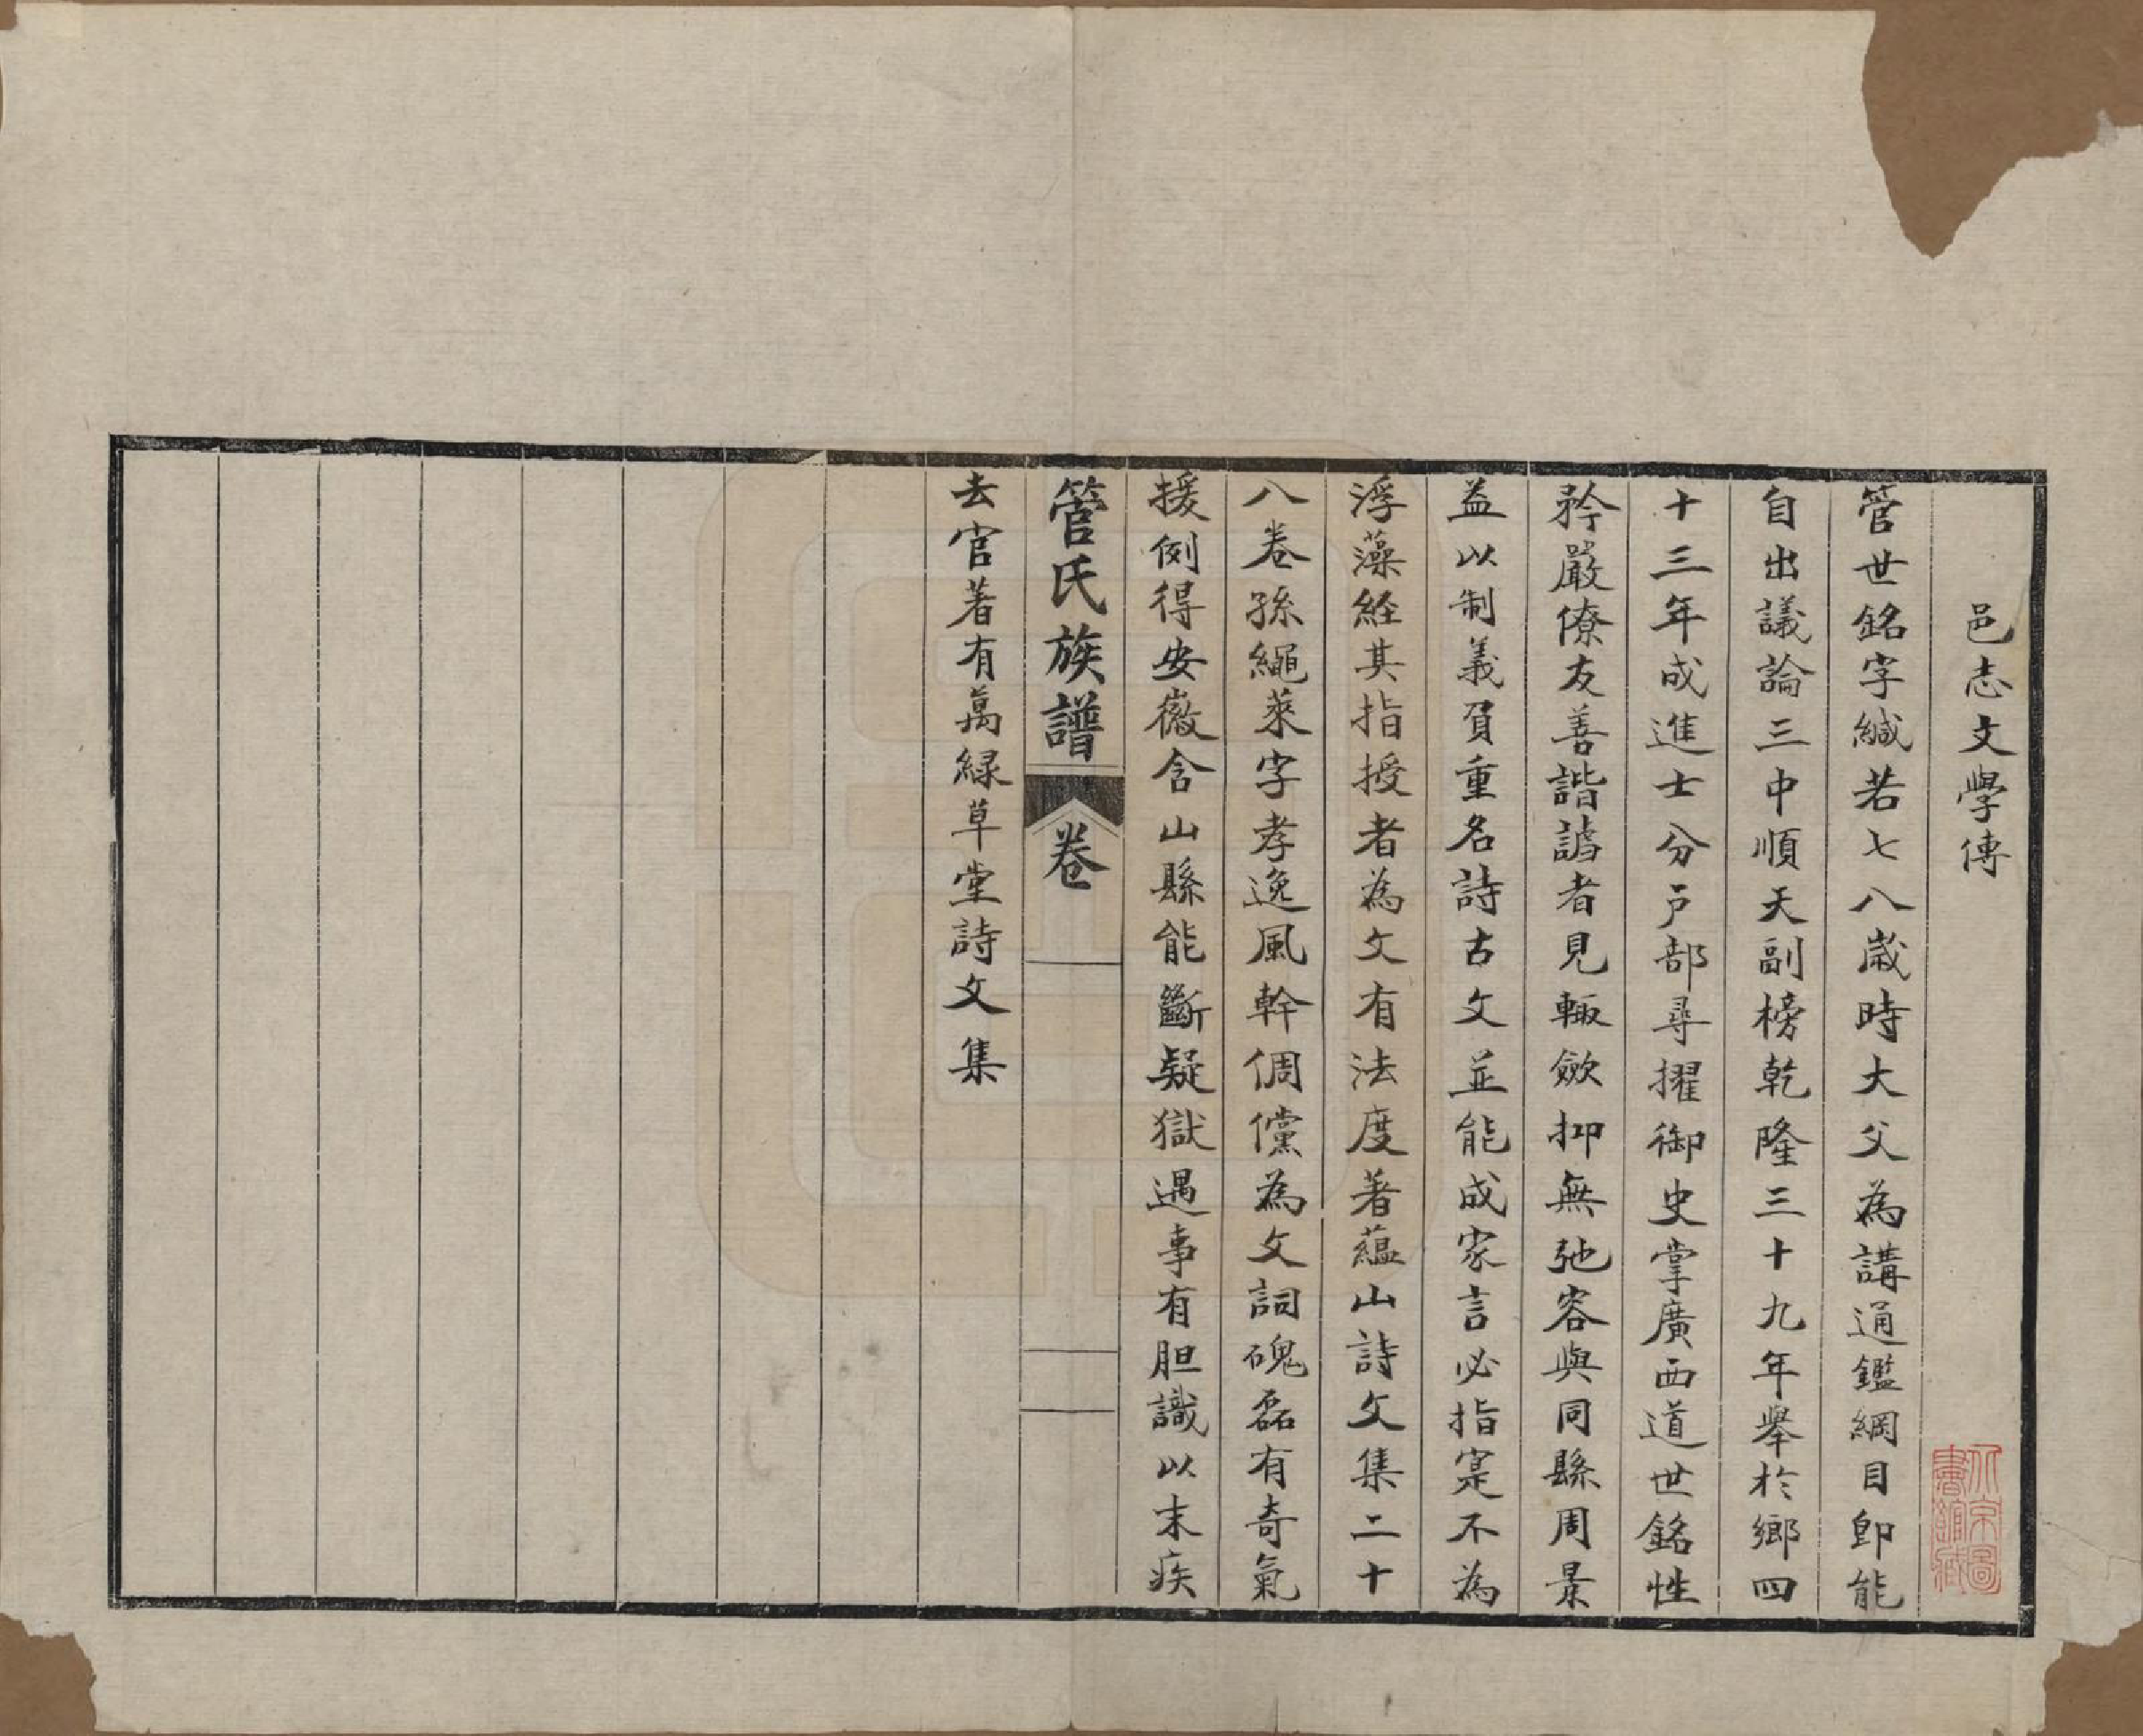 邑志文學傳
管世銘字緘若七八歲時大父為講通鑑綱目卽能
自出議論三中順天副榜乾隆三十九年舉於鄉四
十三年成進士分戶部尋擢御史掌廣西道世銘性
矜嚴僚友善諧謔者見輒歛抑無弛容與同縣周景
益以制義負重名詩古文並能成家言必指寔不為
浮藻經其指授者為文有法度著蘊山詩文集二十
八卷孫繩萊字孝逸風幹倜儻為文詞磈磊有奇氣
援例得安徽含山縣能斷疑獄遇事有胆識以末疾
管氏族譜 卷
去官著有萬綠草堂詩文集
北京圖
書館藏